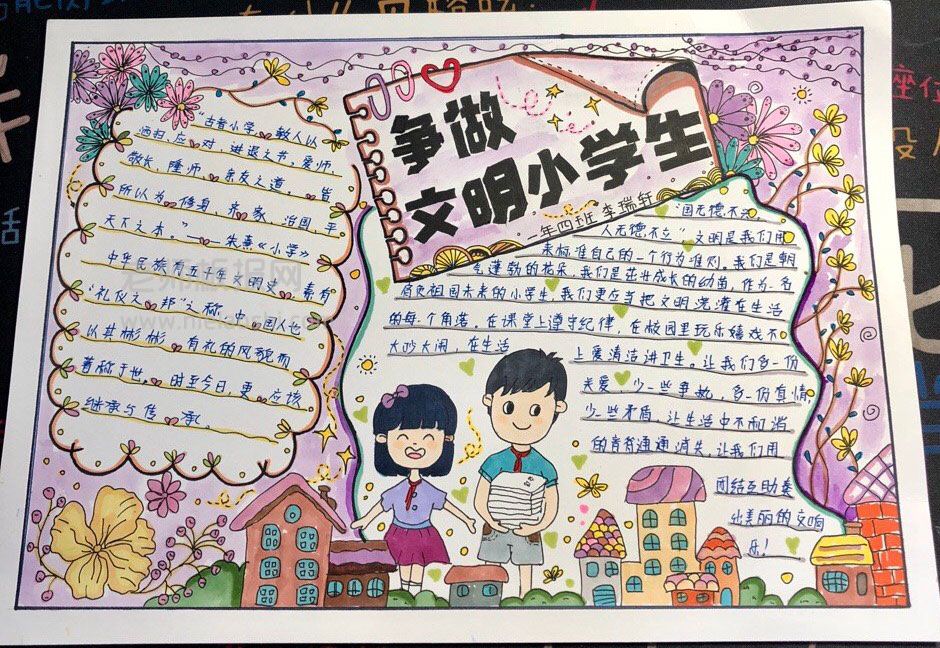 争做
文明小学生
一年四班 李瑞轩
"古者小学,教人以
洒扫、应对、进退之节,爱
敬长,隆师,亲友之道,皆
所以为修身,齐家,治国,平
天下之本。"——朱熹《小学》
中华民族有五千年文明史,素有
"礼仪之邦"之称,中国人也
以其彬彬有礼的风貌而
著称于世。时至今日,更应该
继承与传承。
"国无德不
人无德不立"文明是我们用
来标准自己的一个行为准则。我们是朝
气蓬勃的花朵,我们是茁壮成长的幼苗,作为一名
祖国未来的小学生,我们更应当把文明浇灌在生活
的每个角落。在课堂上遵守纪律,在校园里玩乐嬉戏不
大吵大闹,在生活
上爱清洁讲卫生。让我们多一份
关爱,少一些事执,多一份真情
少一些矛盾,让生活中不和谐
的音符通通消失,让我们用
团结互助奏
出美丽的文明
乐!
老师板报网